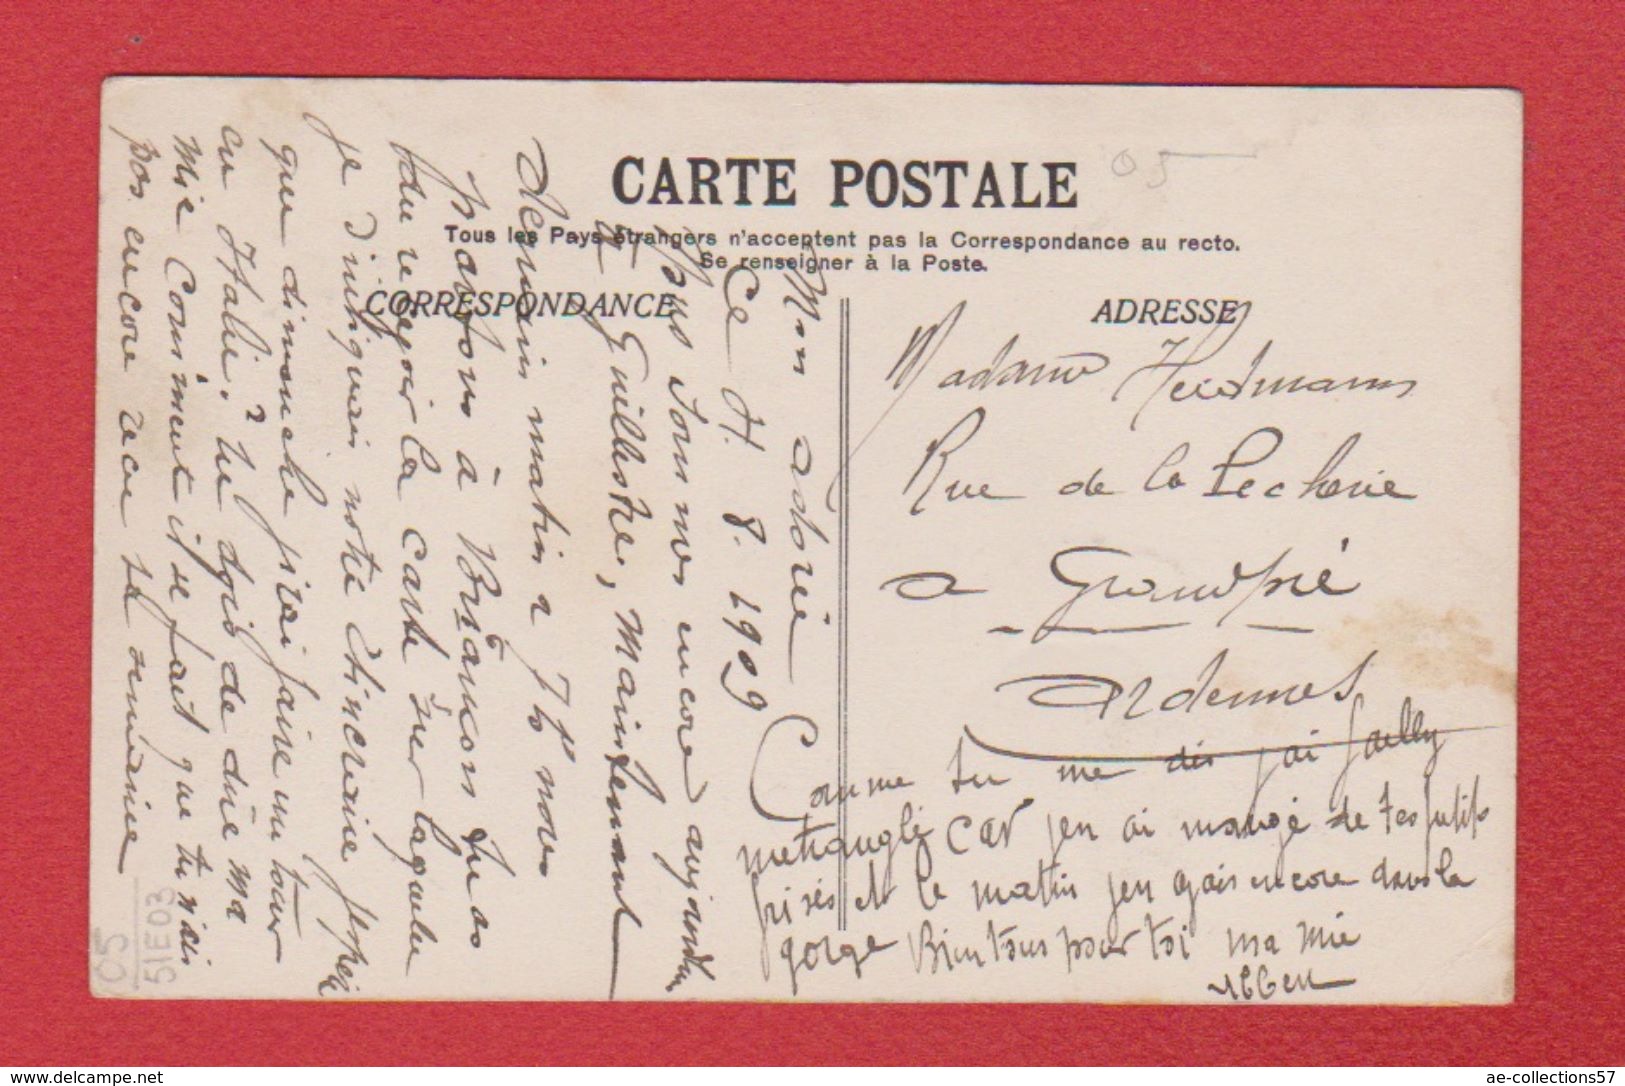 CARTE POSTALE
Tous les Pays étrangers n'acceptent pas la Correspondance au recto.
Se renseigner à la Poste.
CORRESPONDANCE
ADRESSE
Madame
Rue de la Pecherie
a Grandpré
Ardennes
Mon adorée
Ce 11. 8. 1909
Nous sommes encore aujourd'hui
à Guillestre, maintenant
demain matin a 7h nous
partons à Briançon tu as
du reçoir la carte sur laquelle
je t'indiquais notre itinéraire
que dimanche j'irai faire un tour
en Italie.
mie Comment il se fait que tu n'ais
pas encore recu ta semaine
Comme tu me dis j'ai failly
metrangle car j'en ai mangé de tes
et le matin j'en avais encore dans la
gorge Bien tous pour toi ma mie
05
05
51E03
ae-collections57